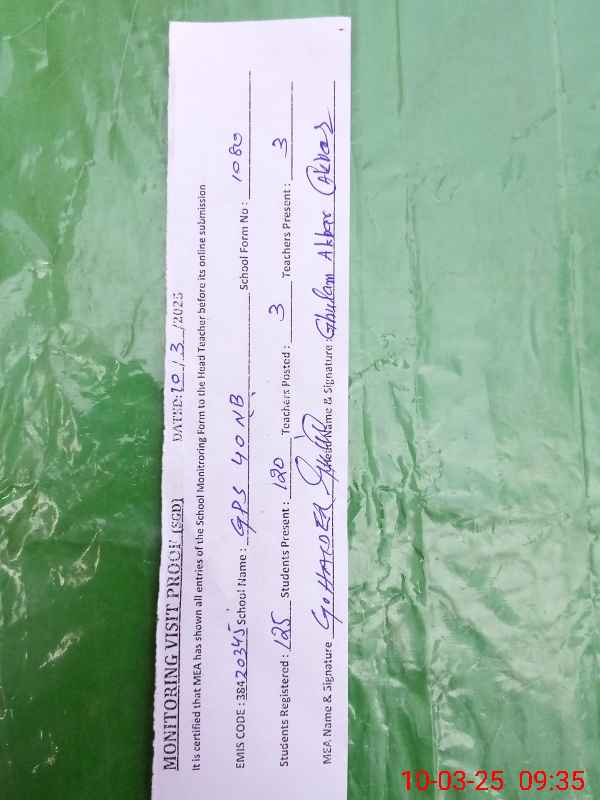 MONITORING VISIT PROOF (SGD) DATED: 10/3/2025
It is certified that MEA has shown all entries of the School Monitroring Form to the Head Teacher before its online submission
EMIS CODE : 38420345 School Name : GPS 40 NB School Form No : 1080
Students Registered : 125 Students Present : 120 Teachers Posted : 3 Teachers Present : 3
MEA Name & Signature G. HAIDER Head Name & Signature : Ghulam Akbar Akbar
10-03-25 09:35